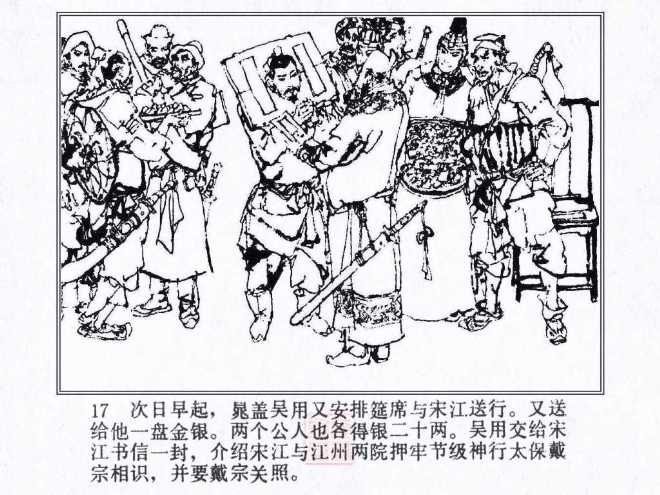 17　次日早起，晁盖吴用又安排筵席与宋江送行。又送
给他一盘金银。两个公人也各得银二十两。吴用交给宋
江书信一封，介绍宋江与江州两院押牢节级神行太保戴
宗相识，并要戴宗关照。